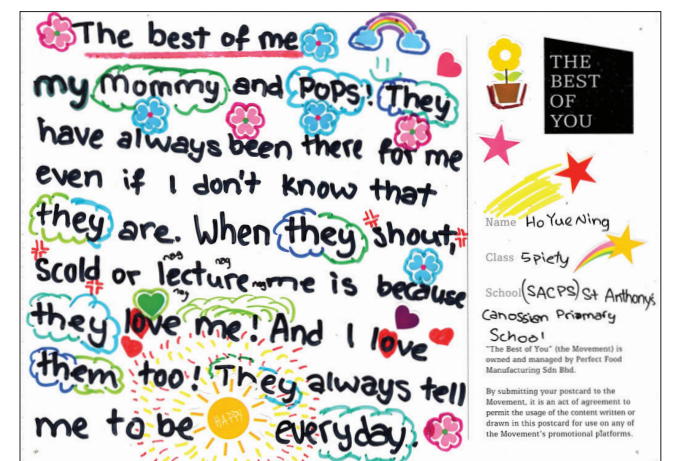 The best of me
my Mommy and Pops! They
have always been there for me
even if I don't know that
they are. When they shout,
nag nag
scold or lecture nag me is because
nag
they love me! And I love
them too! They always tell
me to be HAPPY everyday.
THE
BEST
OF
YOU
Name Ho Yue Ning
Class 5 piety
School (SACPS) St Anthony's
Canossian Priamary
School
"The Best of You" (the Movement) is
owned and managed by Perfect Food
Manufacturing Sdn Bhd.
By submitting your postcard to the
Movement, it is an act of agreement to
permit the usage of the content written or
drawn in this postcard for use on any of
the Movement's promotional platforms.